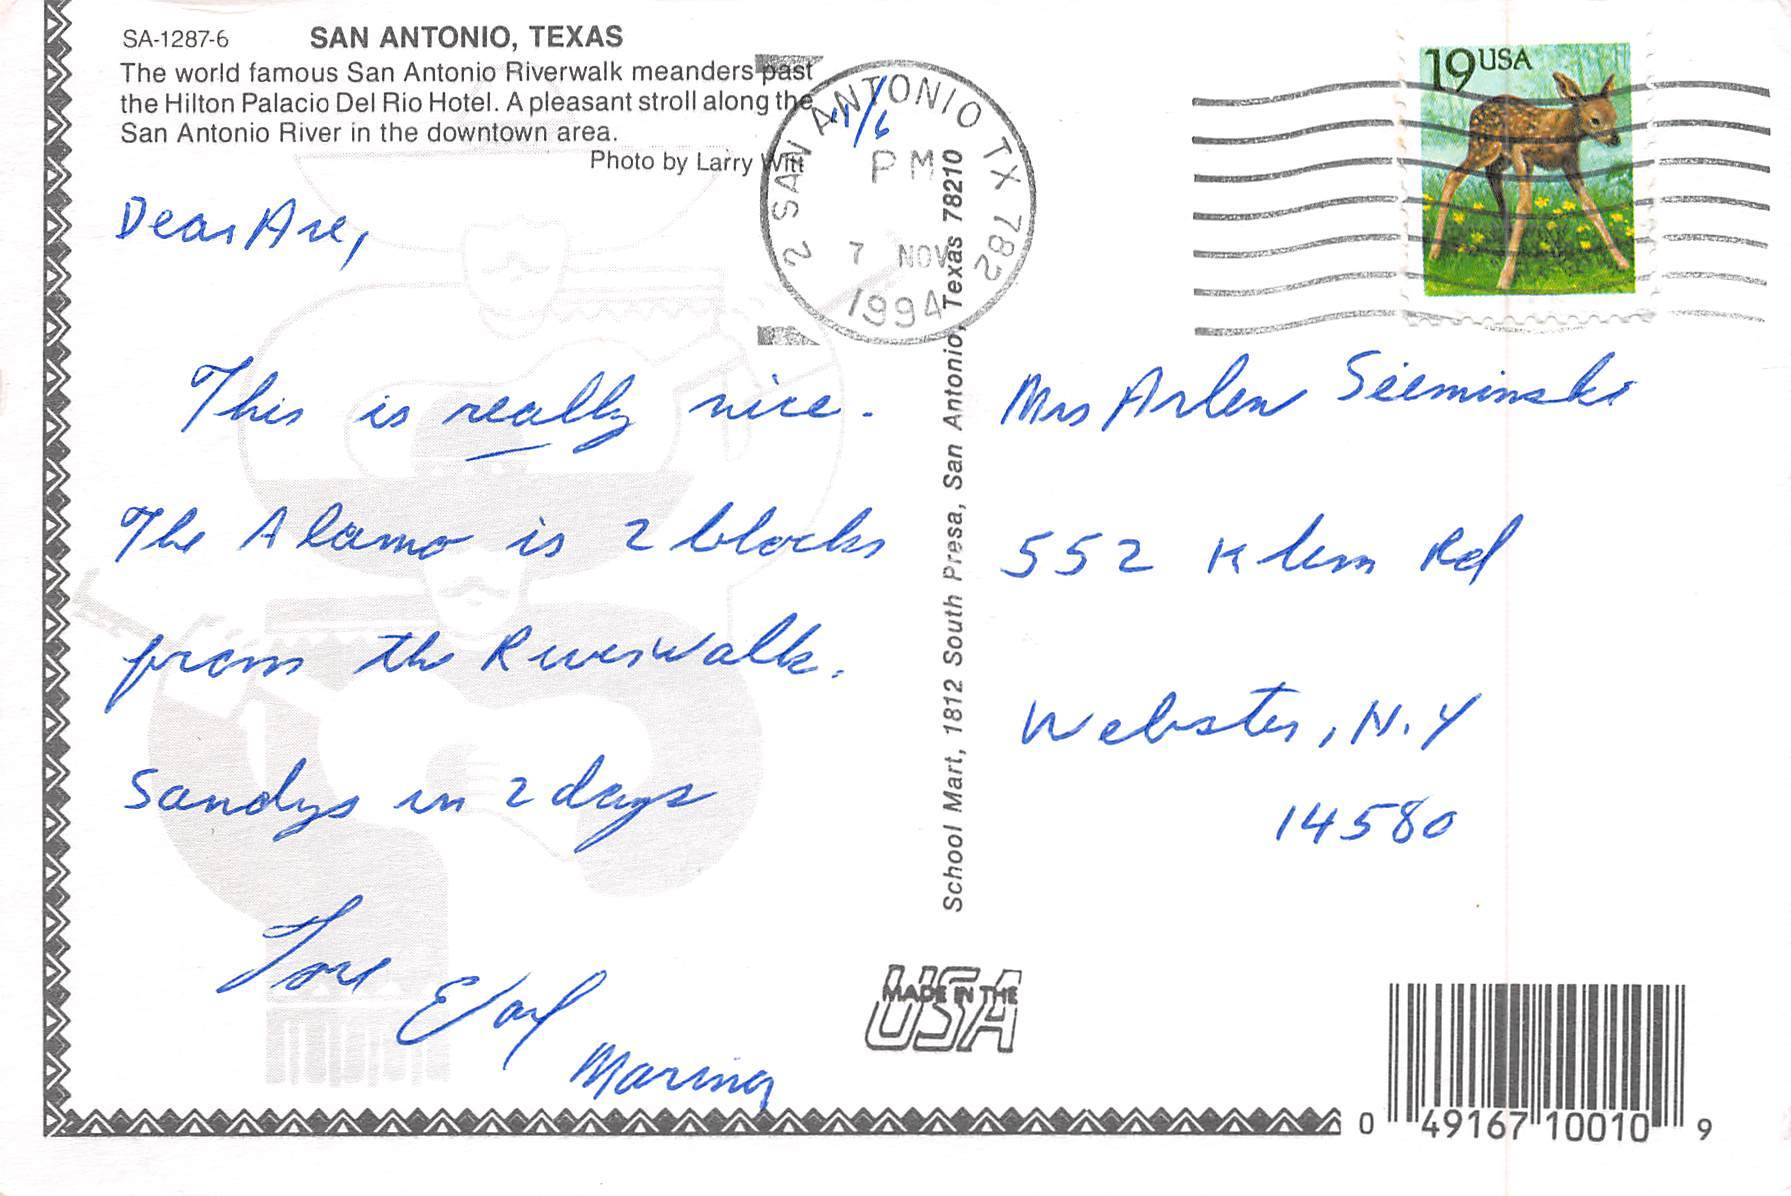 SA-1287-6 SAN ANTONIO, TEXAS
The world famous San Antonio Riverwalk meanders past
the Hilton Palacio Del Rio Hotel. A pleasant stroll along the
San Antonio River in the downtown area.
Photo by Larry Witt
11/6
2 SAN ANTONIO TX 782
PM
7 NOV
1994
19 USA
Dear Are,
This is really nice.
The Alamo is 2 blocks
from the Riverwalk.
Sandys in 2 days
Love
Earl
School Mart, 1812 South Presa, San Antonio, Texas 78210
Mrs Arlen Sieminski
552 Klem Rd
Webster, N.Y
14580
MADE IN THE
USA
0 49167 10010 9